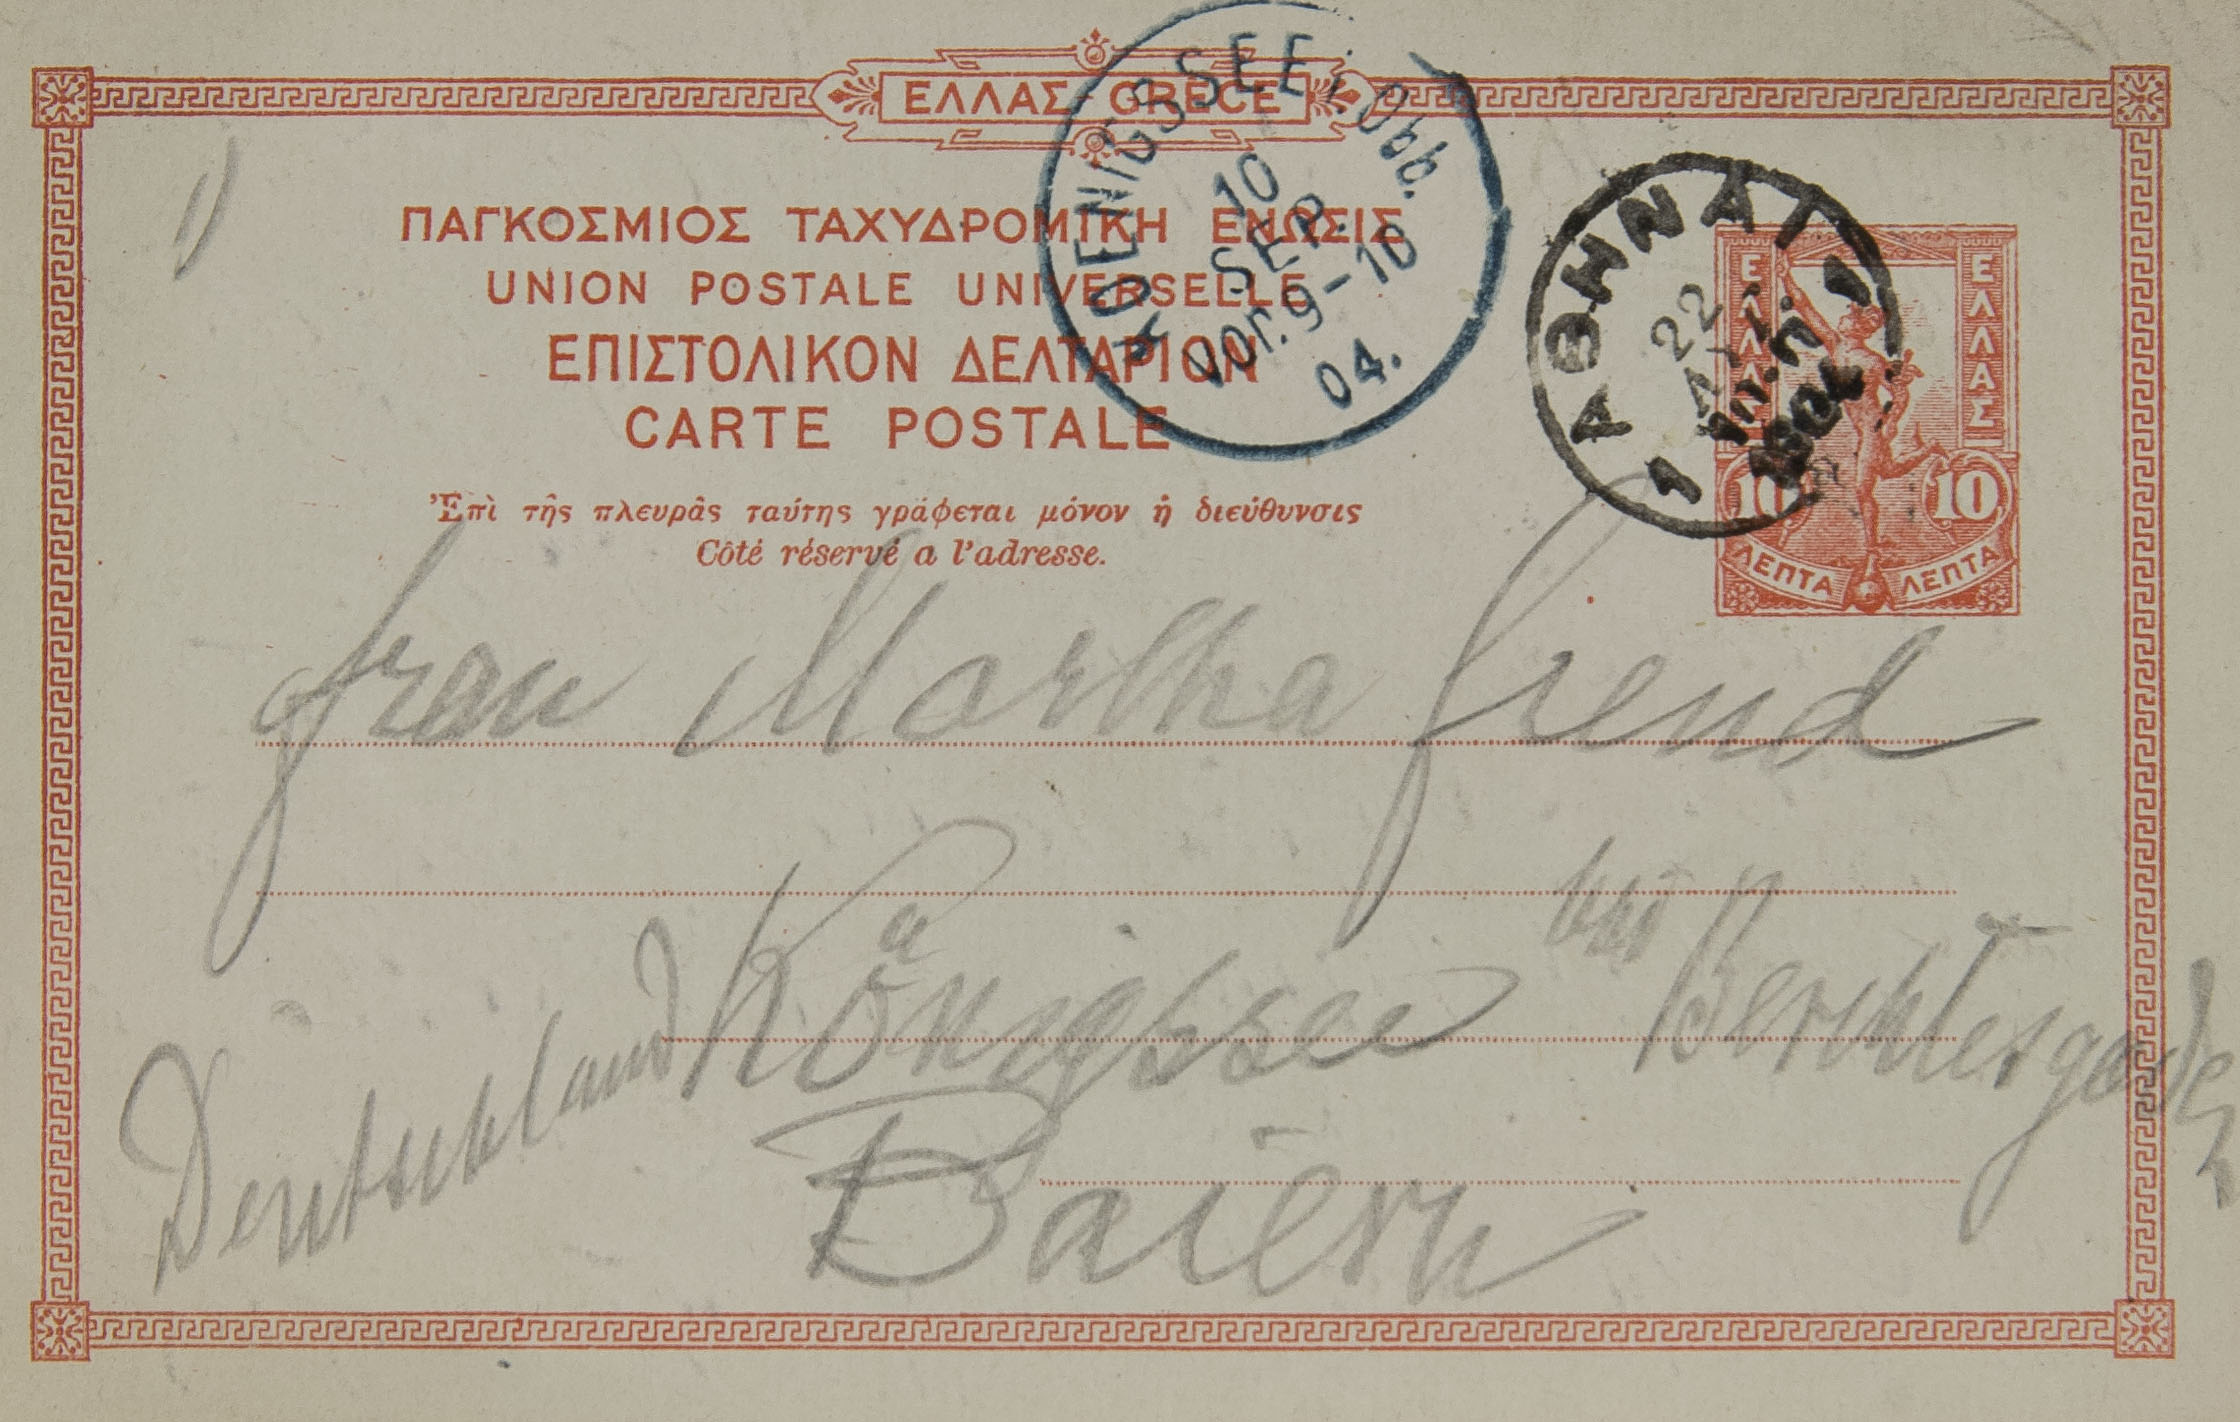 ΕΛΛΑΣ-GRÈCE
ΠΑΓΚΟΣΜΙΟΣ ΤΑΧΥΔΡΟΜΙΚΗ ΕΝΩΣΙΣ
UNION POSTALE UNIVERSELLE
ΕΠΙΣΤΟΛΙΚΟΝ ΔΕΛΤΑΡΙΟΝ
CARTE POSTALE
Ἐπὶ τῆς πλευρᾶς ταύτης γράφεται μόνον ἡ διεύθυνσις
Côté réservé a l'adresse.
KOENIGSSEE, Obb.
10
SEP.
Vor. 9-10
04.
ΑΘΗΝΑΙ 1
22
ΑΥΓ.
1
ΕΛΛΑΣ
ΕΛΛΑΣ
10 10
ΛΕΠΤΑ ΛΕΠΤΑ
1)
Frau Martha Freud
Königssee bei Berchtesgaden
Deutschland
Baiern